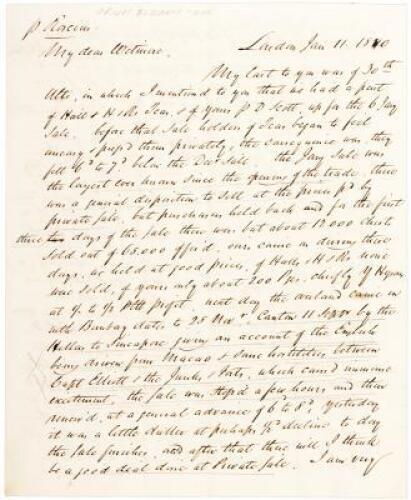 p Roscius
London Jan 11. 1840
My dear Wetmore.
My last to you was of 30th
Ulto, in which I mentioned to you that we had a part
of Hall & H's Teas, & of yours p D Scott, up for the 6 Jany
Sale. before that Sale holders of Teas began to feel
uneasy & press'd them privately, the consequence was, they
fell 6d to 7d below the Decr Sale. the Jany Sale was
the largest ever known since the opening of the trade, there
was a general disposition to sell at the prices pd by
private sale, but purchasers held back and for the first
three days of the sale there were but about 12.000 chests
sold out of 65.000 offer'd. ours came on during these
days. we held at good prices, of Halls & H's none
were sold, of yours only about 200 Pgs. chiefly Y Hyson
at profit. next day the overland came in
with Bombay dates to 25 Novr & Canton 11 Sepr by the
to Singapore giving an account of the English
being driven from Macao & some hostilities between
Capt Elliott & the Junks & Forts, which caus'd immense
excitement, the Sale was stop'd a few hours, and then
renew'd, at a general advance of 6d to 8d. yesterday
it was a little duller at perhaps decline to day
the Sale finishes, and after that there will I think
be a good deal done at Private Sale. I am very